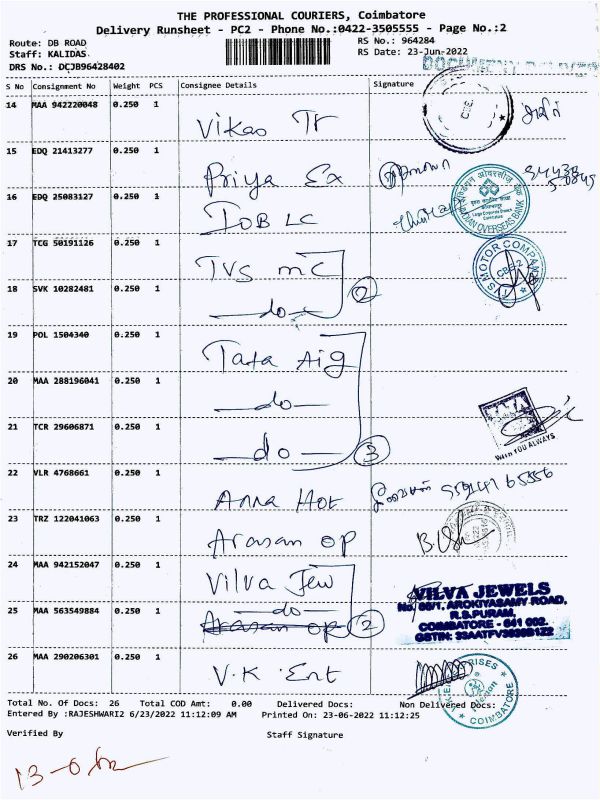 THE PROFESSIONAL COURIERS, Coimbatore
Delivery Runsheet - PC2 - Phone No.:0422-3505555 - Page No.:2
Route: DB ROAD
Staff: KALIDAS
DRS No.: DCJB96428402
RS No.: 964284
RS Date: 23-Jun-2022
S No Consignment No Weight PCS Consignee Details Signature
14 MAA 942220048 0.250 1 Vikas Tr
15 EDQ 21413277 0.250 1 Priya Ex
16 EDQ 25083127 0.250 1 IOB LC
INDIAN OVERSEAS BANK
17 TCG 50191126 0.250 1 TVS MC
TVS MOTOR COMPANY
CBE-2
18 SVK 10282481 0.250 1 do 2
19 POL 1504340 0.250 1 Tata Aig
20 MAA 288196041 0.250 1 do
21 TCR 29606871 0.250 1 do 3
WITH YOU ALWAYS
22 VLR 4768661 0.250 1 Anna Hot
23 TRZ 122041063 0.250 1 Arasan OP
24 MAA 942152047 0.250 1 Vilva Jew
VILVA JEWELS
AROKIYASAMY ROAD,
R.S.PURAM,
COIMBATORE - 641 002.
25 MAA 563549884 0.250 1 do 2
Arasan OP
26 MAA 290206301 0.250 1 V.K Ent
COIMBATORE
Total No. Of Docs: 26 Total COD Amt: 0.00 Delivered Docs: Non Delivered Docs:
Entered By :RAJESHWARI2 6/23/2022 11:12:09 AM Printed On: 23-06-2022 11:12:25
Verified By Staff Signature